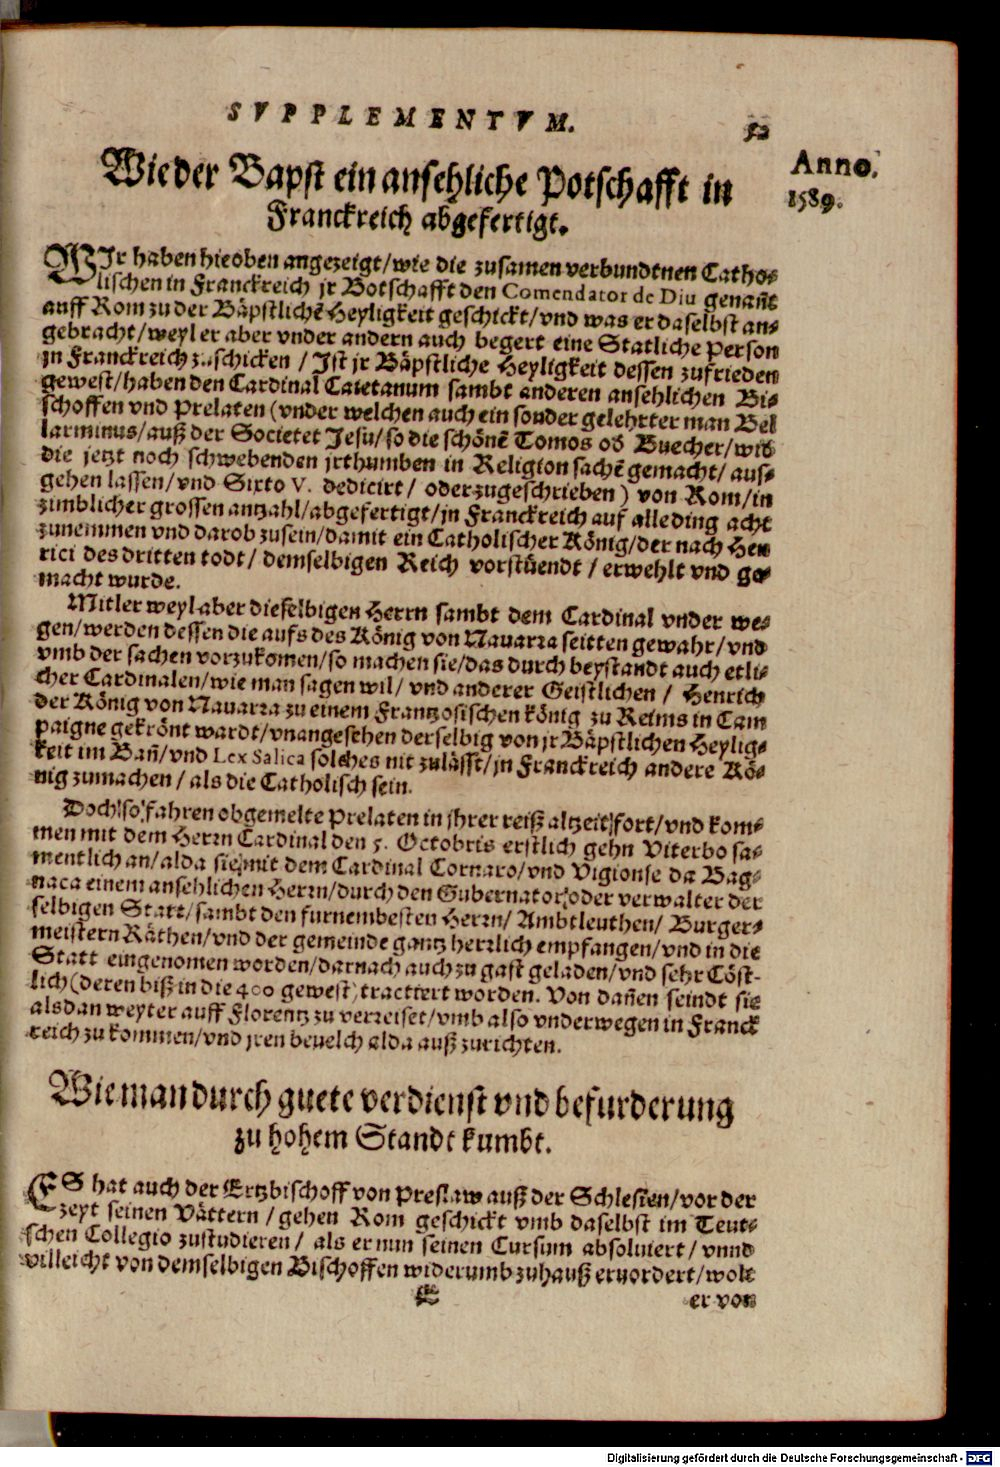 SVPPLEMENTVM.
52
Anno.
1589.
Wie der Bapst ein ansehliche Potschafft in
Franckreich abgefertigt.
WIr haben hieoben angezeigt/wie die zusamen verbundtnen Catho-
lischen in Franckreich jr Botschafft den Comendator de Diu genañt
auff Rom zu der Bäpstlichẽ Heyligkeit geschickt/vnd was er daselbst an-
gebracht/weyl er aber vnder andern auch begert eine Statliche Person
jn Franckreich zuschicken / Ist jr Bäpstliche Heyligkeit dessen zufrieden
gewest/haben den Cardinal Caietanum sambt anderen ansehlichen Bi-
schoffen vnd Prelaten (vnder welchen auch ein sonder gelehrter man Bel
larminus/auß der Societet Jesu/so die schönẽ Tomos oď Buecher/wid
die jetzt noch schwebenden jrthumben in Religion sachẽ gemacht/ aus-
gehen lassen/vnd Sixto V. dedicirt / oder zugeschrieben) von Rom/in
zimblicher grossen antzahl/abgefertigt/jn Franckreich auf alle ding acht
zunemmen vnd darob zusein/damit ein Catholischer König/der nach Hen
rici des dritten todt/ demselbigen Reich vorstüendt / erwehlt vnd ge-
macht wurde.
Mitler weyl aber dieselbigen Herrn sambt dem Cardinal vnder we-
gen/werden dessen die aufs des König von Nauarra seitten gewahr/vnd
vmb der sachen vorzukomen/so machen sie/das durch beystandt auch etli-
cher Cardinalen/wie man sagen wil/ vnd anderer Geistlichen / Henrich
der König von Nauarra zu einem Frantzosischen könig zu Reims in Cam
paigne gekrönt wardt/vnangesehen derselbig von jr Bäpstlichen Heylig-
keit im Bañ/vnd Lex Salica solches nit zulässt/jn Franckreich andere Kö-
nig zumachen / als die Catholisch sein.
Doch so fahren obgemelte Prelaten in jhrer reiß altzeit fort/vnd kom-
men mit dem Herrn Cardinal den 5. Octobris erstlich gehn Viterbo sa-
mentlich an/alda sie mit dem Cardinal Cornaro/vnd Vigionse da Bag-
naca einem ansehlichen Herrn/durch den Gubernator oder verwalter der
selbigen Statt/sambt den furnembesten Herrn/ Ambtleuthen/ Burger-
meistern Räthen/vnd der gemeinde gantz herrlich empfangen/vnd in die
Statt eingenomen worden/darnach auch zu gast geladen/vnd sehr Cöst-
lich (deren biß in die 400 gewest) tractiert worden. Von dañen seindt sie
alsdan weyter auff Florentz zu verreiset/vmb also vnderwegen in Franck
reich zu kommen/vnd jren beuelch alda auß zurichten.
Wie man durch guete verdienst vnd befurderung
zu hohem Standt kumbt.
ES hat auch der Ertzbischoff von Preslaw auß der Schlesien/vor der
zeyt seinen Vättern / gehen Rom geschickt vmb daselbst im Teut-
schen Collegio zustudieren/ als er nun seinen Cursum absoluiert / vnnd
villeicht von demselbigen Bischoffen widerumb zuhauß eruordert/wolt
er von
Digitalisierung gefördert durch die Deutsche Forschungsgemeinschaft - DFG